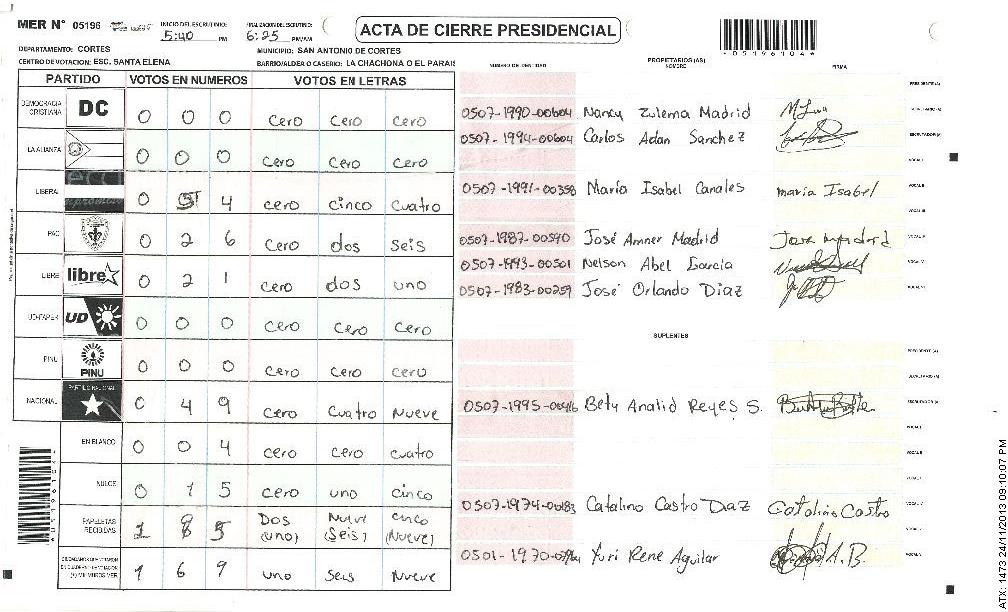 MER N° 05196 INICIO DEL ESCRUTINIO: 5:40 PM FINALIZACION DEL ESCRUTINIO: 6:25 PM/AM ACTA DE CIERRE PRESIDENCIAL
DEPARTAMENTO: CORTES MUNICIPIO: SAN ANTONIO DE CORTES
CENTRO DE VOTACION: ESC. SANTA ELENA BARRIO/ALDEA O CASERIO: LA CHACHONA O EL PARAIS
*05196104*
PARTIDO VOTOS EN NUMEROS VOTOS EN LETRAS
DEMOCRACIA CRISTIANA DC 0 0 0 Cero Cero Cero
LA ALIANZA 0 0 0 Cero Cero Cero
LIBERAL 0 5 4 cero cinco cuatro
PAC 0 2 6 Cero dos seis
LIBRE libre 0 2 1 cero dos uno
UD-FAPER UD 0 0 0 cero Cero Cero
PINU PINU 0 0 0 cero Cero cero
NACIONAL PARTIDO NACIONAL 0 4 9 cero Cuatro Nueve
EN BLANCO 0 0 4 cero cero cuatro
NULOS 0 1 5 cero uno cinco
PAPELETAS RECIBIDAS Dos Nueve cinco
(uno) (Seis) (Nueve)
1 6 9 uno Seis Nueve
NUMERO DE IDENTIDAD PROPIETARIOS (AS) NOMBRE FIRMA
PRESIDENTE (A)
0507-1990-00604 Nancy Zulema Madrid SECRETARIO (A)
0507-1994-00604 Carlos Adan Sanchez ESCRUTADOR (A)
VOCAL I
0507-1991-00358 María Isabel Canales maria Isabel VOCAL II
VOCAL III
0507-1987-00590 José Amner Madrid VOCAL IV
0507-1993-00501 Nelson Abel Garcia VOCAL V
0507-1983-00259 José Orlando Diaz VOCAL VI
SUPLENTES
PRESIDENTE (A)
SECRETARIO (A)
0507-1995- Bety Analid Reyes S. ESCRUTADOR (A)
VOCAL I
VOCAL II
0507-1974-00183 Catalino Castro Diaz Catalino Castro
0501-1970- Yuri Rene Aguilar A.B.
ATX: 1473 24/11/2013 09:10:07 PM
*05196104*